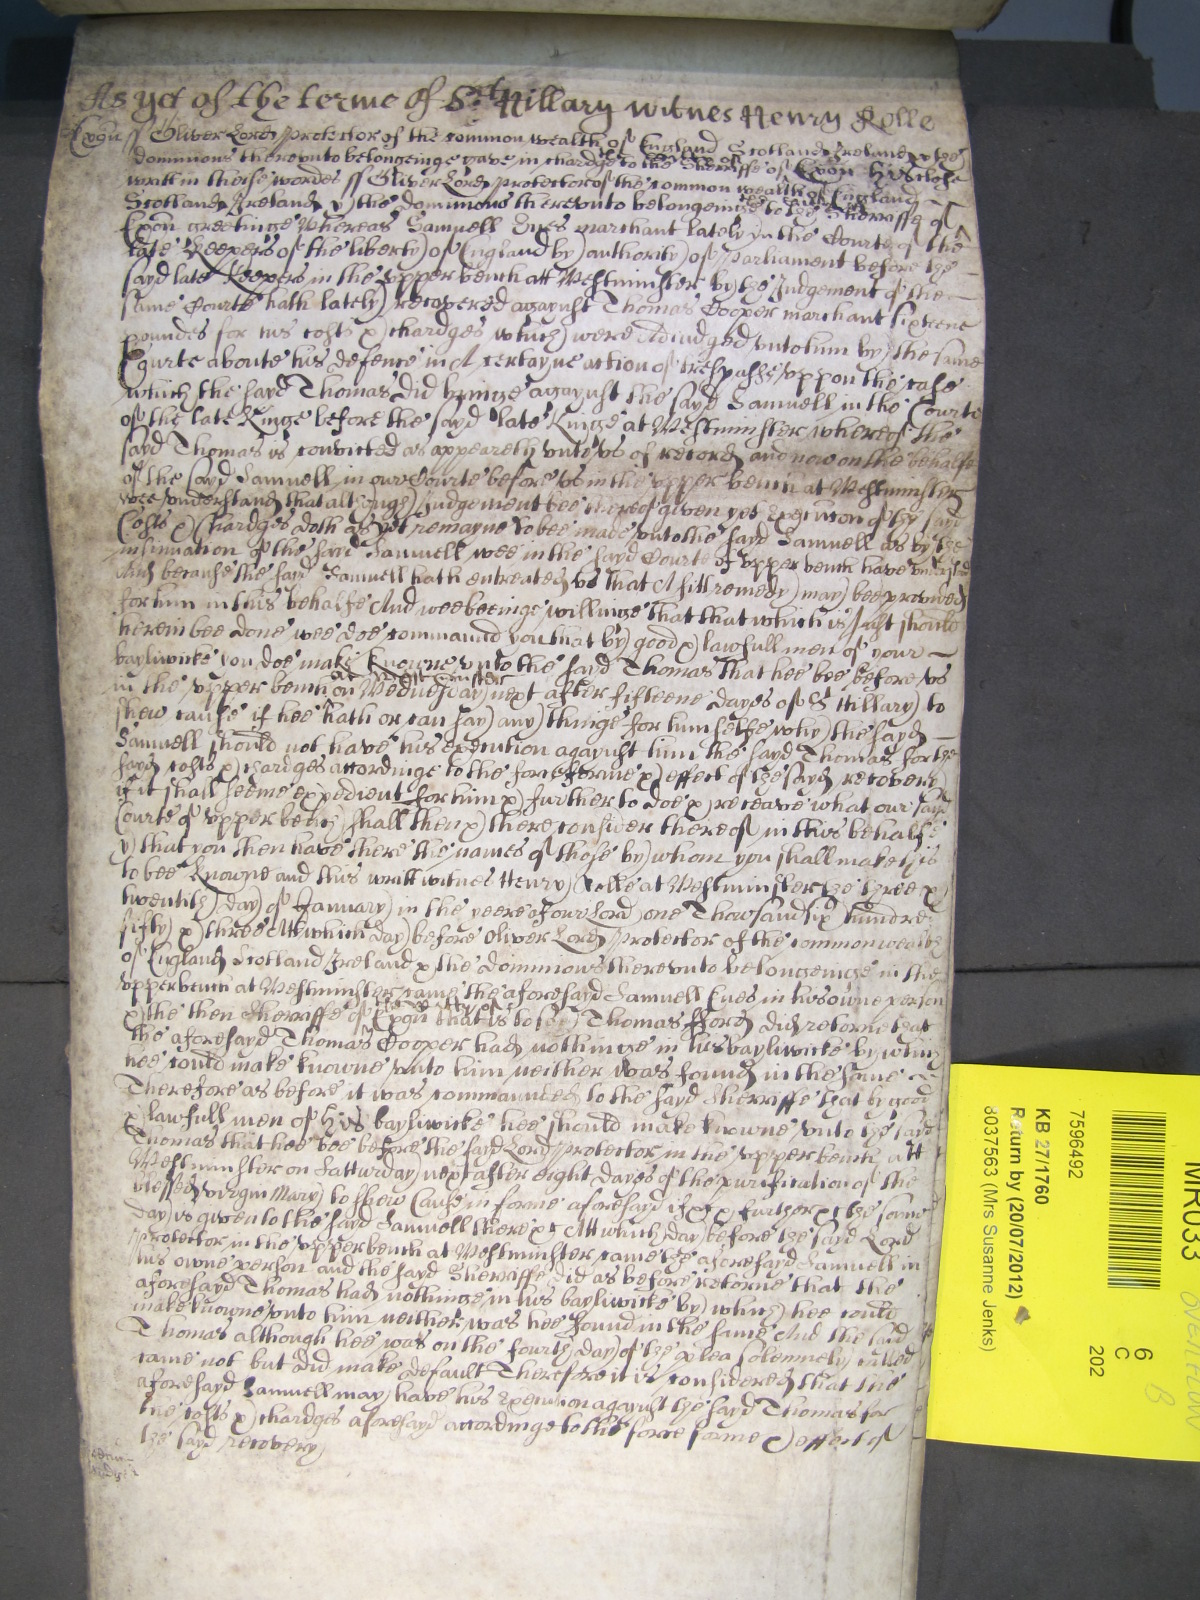 As yet of the terme of St Hillary witnes Henry Rolle
ss Oliver Lord protector of the common wealth of England Scotland Ireland & the
dominions thereunto belongeinge gave in chardge to the Sherriffe of his close
writt in theise wordes ss Oliver Lord protector of the common wealth of England
Scotland Ireland & the dominions thereunto belongeinge to the Sherriffe of
greetinge Whereas Samuell Eves marchant lately in the Courte of the
late Keepers of the liberty of England by authority of Parliament before the
sayd late Keepers in the upper bench att Westminster by the Judgement of the
same Courte hath lately recovered agaynst Thomas Cooper marchant sixteene
poundes for his costs & chardges which were Adiudged unto him by the same
Courte aboute his defence in A certayne action of trespasse uppon the case
which the sayd Thomas did bringe agaynst the sayd Samuell in the Courte
of the late Kinge before the sayd late Kinge at Westminster whereof the
sayd Thomas is convicted as appeareth unto us of record and now on the behalfe
of the sayd Samuell in our Courte before us in the upper bench at Westminster
wee understand that although Judgement bee thereof given yet execution of the sayd
Costs & Chardges doth as yet remayne to bee made unto the sayd Samuell as by the
insinuation of the sayd Samuell wee in the sayd Courte of upper bench have understood
And because the sayd Samuell hath entreated us that A fitt remedy may bee provided
for him in this behalfe And wee beeinge willinge that that which is Just should
herein bee done wee doe command you that by good & lawfull men of your
bayliwicke you doe make knowne unto the sayd Thomas that hee bee before us
in the upper bench at Westminster on Wednesday next after fifteene dayes of St Hillary to
shew cause if hee hath or can say any thinge for himselfe why the sayd
Samuell should not have his execution agaynst him the sayd Thomas for the
sayd costs & chardges accordinge to the force forme & effect of the sayd recovery
if it shall seeme expedient for him & further to doe & receave what our sayd
Courte of upper bench shall then & there consider thereof in this behalfe
& that you then have there the names of those by whom you shall make this
to bee knowne and this writt witnes Henry Rolle at Westminster the three &
twentith day of January in the yeere of our Lord one Thowsand six hundred
fifty & three Att which day before Oliver Lord protector of the commonwealth
of England Scotland Ireland & the dominions thereunto belongeinge in the
upper bench at Westminster came the aforesayd Samuell Eves in his owne person
& the then Sherriffe of that is to say Thomas fford did retorne that
the aforesayd Thomas Cooper had nothinge in his bayliwicke by which
hee could make knowne unto him neither was found in the same
Therefore as before it was commaunded to the sayd Sherriffe that by good
& lawfull men of his bayliwicke hee should make knowne unto the sayd
Thomas that hee bee before the sayd Lord protector in the upper bench att
Westminster on Satturday next after eight dayes of the purification of the
blessed virgin Mary to shew Cause in forme aforesayd if &c & further &c the same
day is given to the sayd Samuell there &c Att which day before the sayd Lord
protector in the upper bench at Westminster came the aforesayd Samuell in
his owne person and the sayd Sherriffe did as before retorne that the
aforesayd Thomas had nothinge in his bayliwicke by which hee could
make knowne unto him neither was hee found in the same And the sayd
Thomas although hee was on the fourth day of the plea solemnely called
came not but did make default Therefore it is considered that the
aforesayd Samuell may have his execution agaynst the sayd Thomas for
the costs & chardges aforesayd accordinge to the force forme & effect of
the sayd recovery
MR033
6
C
202
7596492
KB 27/1760
Return by (20/07/2012)
8037563 (Mrs Susanne Jenks)